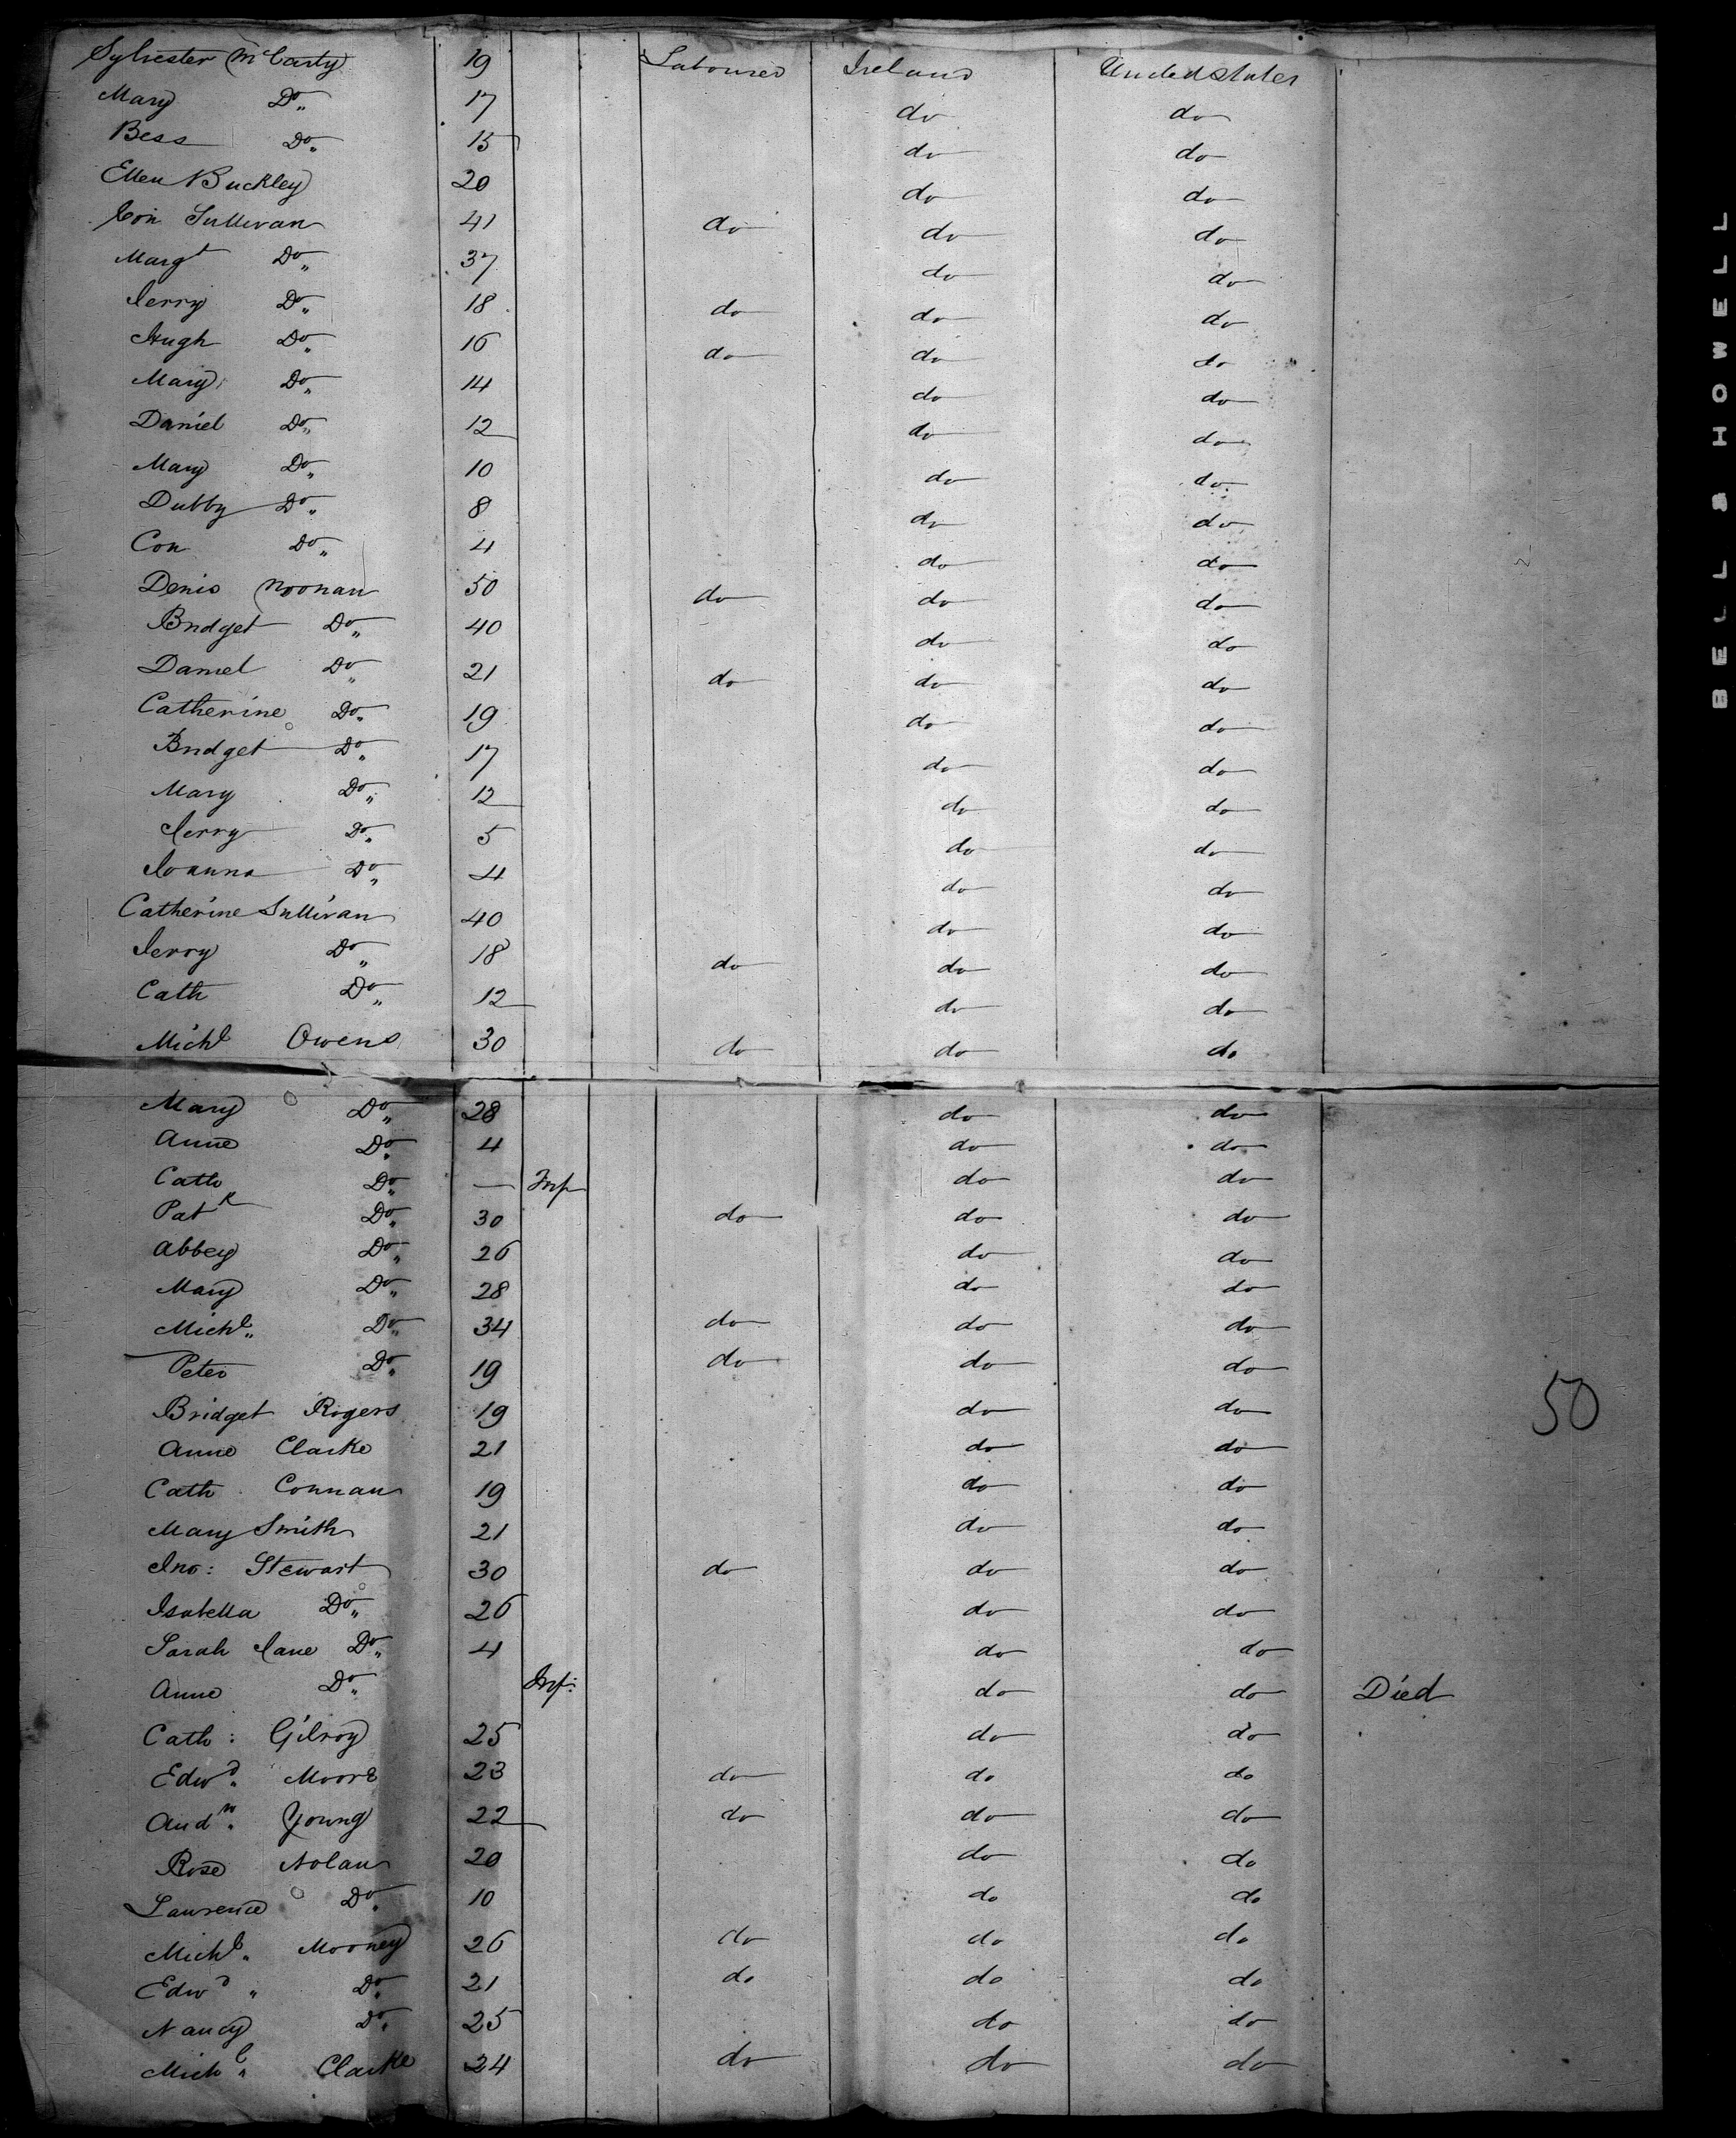 Sylvester McCarty 19 Labourer Ireland United States
Mary Do 17 do do
Bess Do 15 do do
Ellen Buckley 20 do do
Con Sullivan 41 do do do
Margt Do 37 do do
Jerry Do 18 do do do
Hugh Do 16 do do do
Mary Do 14 do do
Daniel Do 12 do do
Mary Do 10 do do
Dubby Do 8 do do
Con Do 4 do do
Denis Noonan 50 do do do
Bridget Do 40 do do
Daniel Do 21 do do do
Catherine Do 19 do do
Bridget Do 17 do do
Mary Do 12 do do
Jerry Do 5 do do
Joanna Do 4 do do
Catherine Sullivan 40 do do
Jerry Do 18 do do do
Cath Do 12 do do
Michl Owens 30 do do do
Mary Do 28 do do
Anne Do 4 do do
Cath Do — Inf do do
Patk Do 30 do do do
Abbey Do 26 do do
Mary Do 28 do do
Michl Do 34 do do do
Peter Do 19 do do do
Bridget Rogers 19 do do
50
Anne Clarke 21 do do
Cath Connan 19 do do
Mary Smith 21 do do
Jno: Stewart 30 do do do
Isabella Do 26 do do
Sarah Jane Do 4 do do
Anne Do Inf: do do Died
Cath: Gilroy 25 do do
Edwd Moore 23 do do do
Andw Young 22 do do do
Rose Nolan 20 do do
Lawrence Do 10 do do
Michl Mooney 26 do do do
Edwd Do 21 do do do
Nancy Do 25 do do
Michl Clarke 24 do do do
BELL & HOWELL